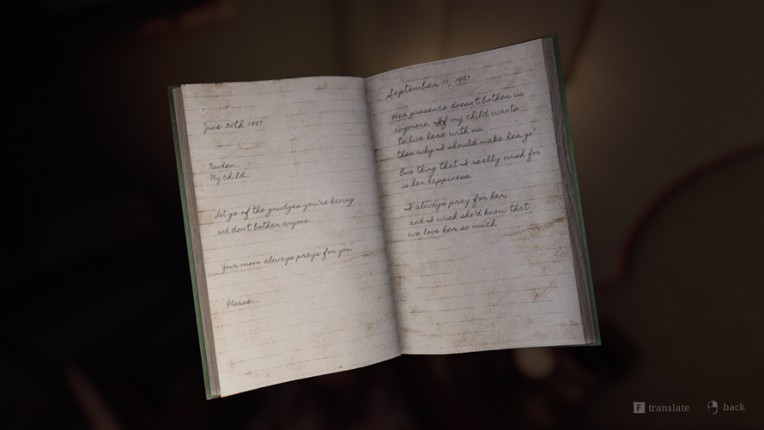 June 30th 1987
My child
Let go of the grudges you're having
and don't bother anyone.
Your mom always prays for you
Please...
September 11, 1987
Her presence doesn't bother us
anymore. If my child wants
to live here with us,
then why I should make her go?
One thing that I really wish for
is her happiness
I always pray for her,
and I wish she'd know that
we love her so much
F translate
back